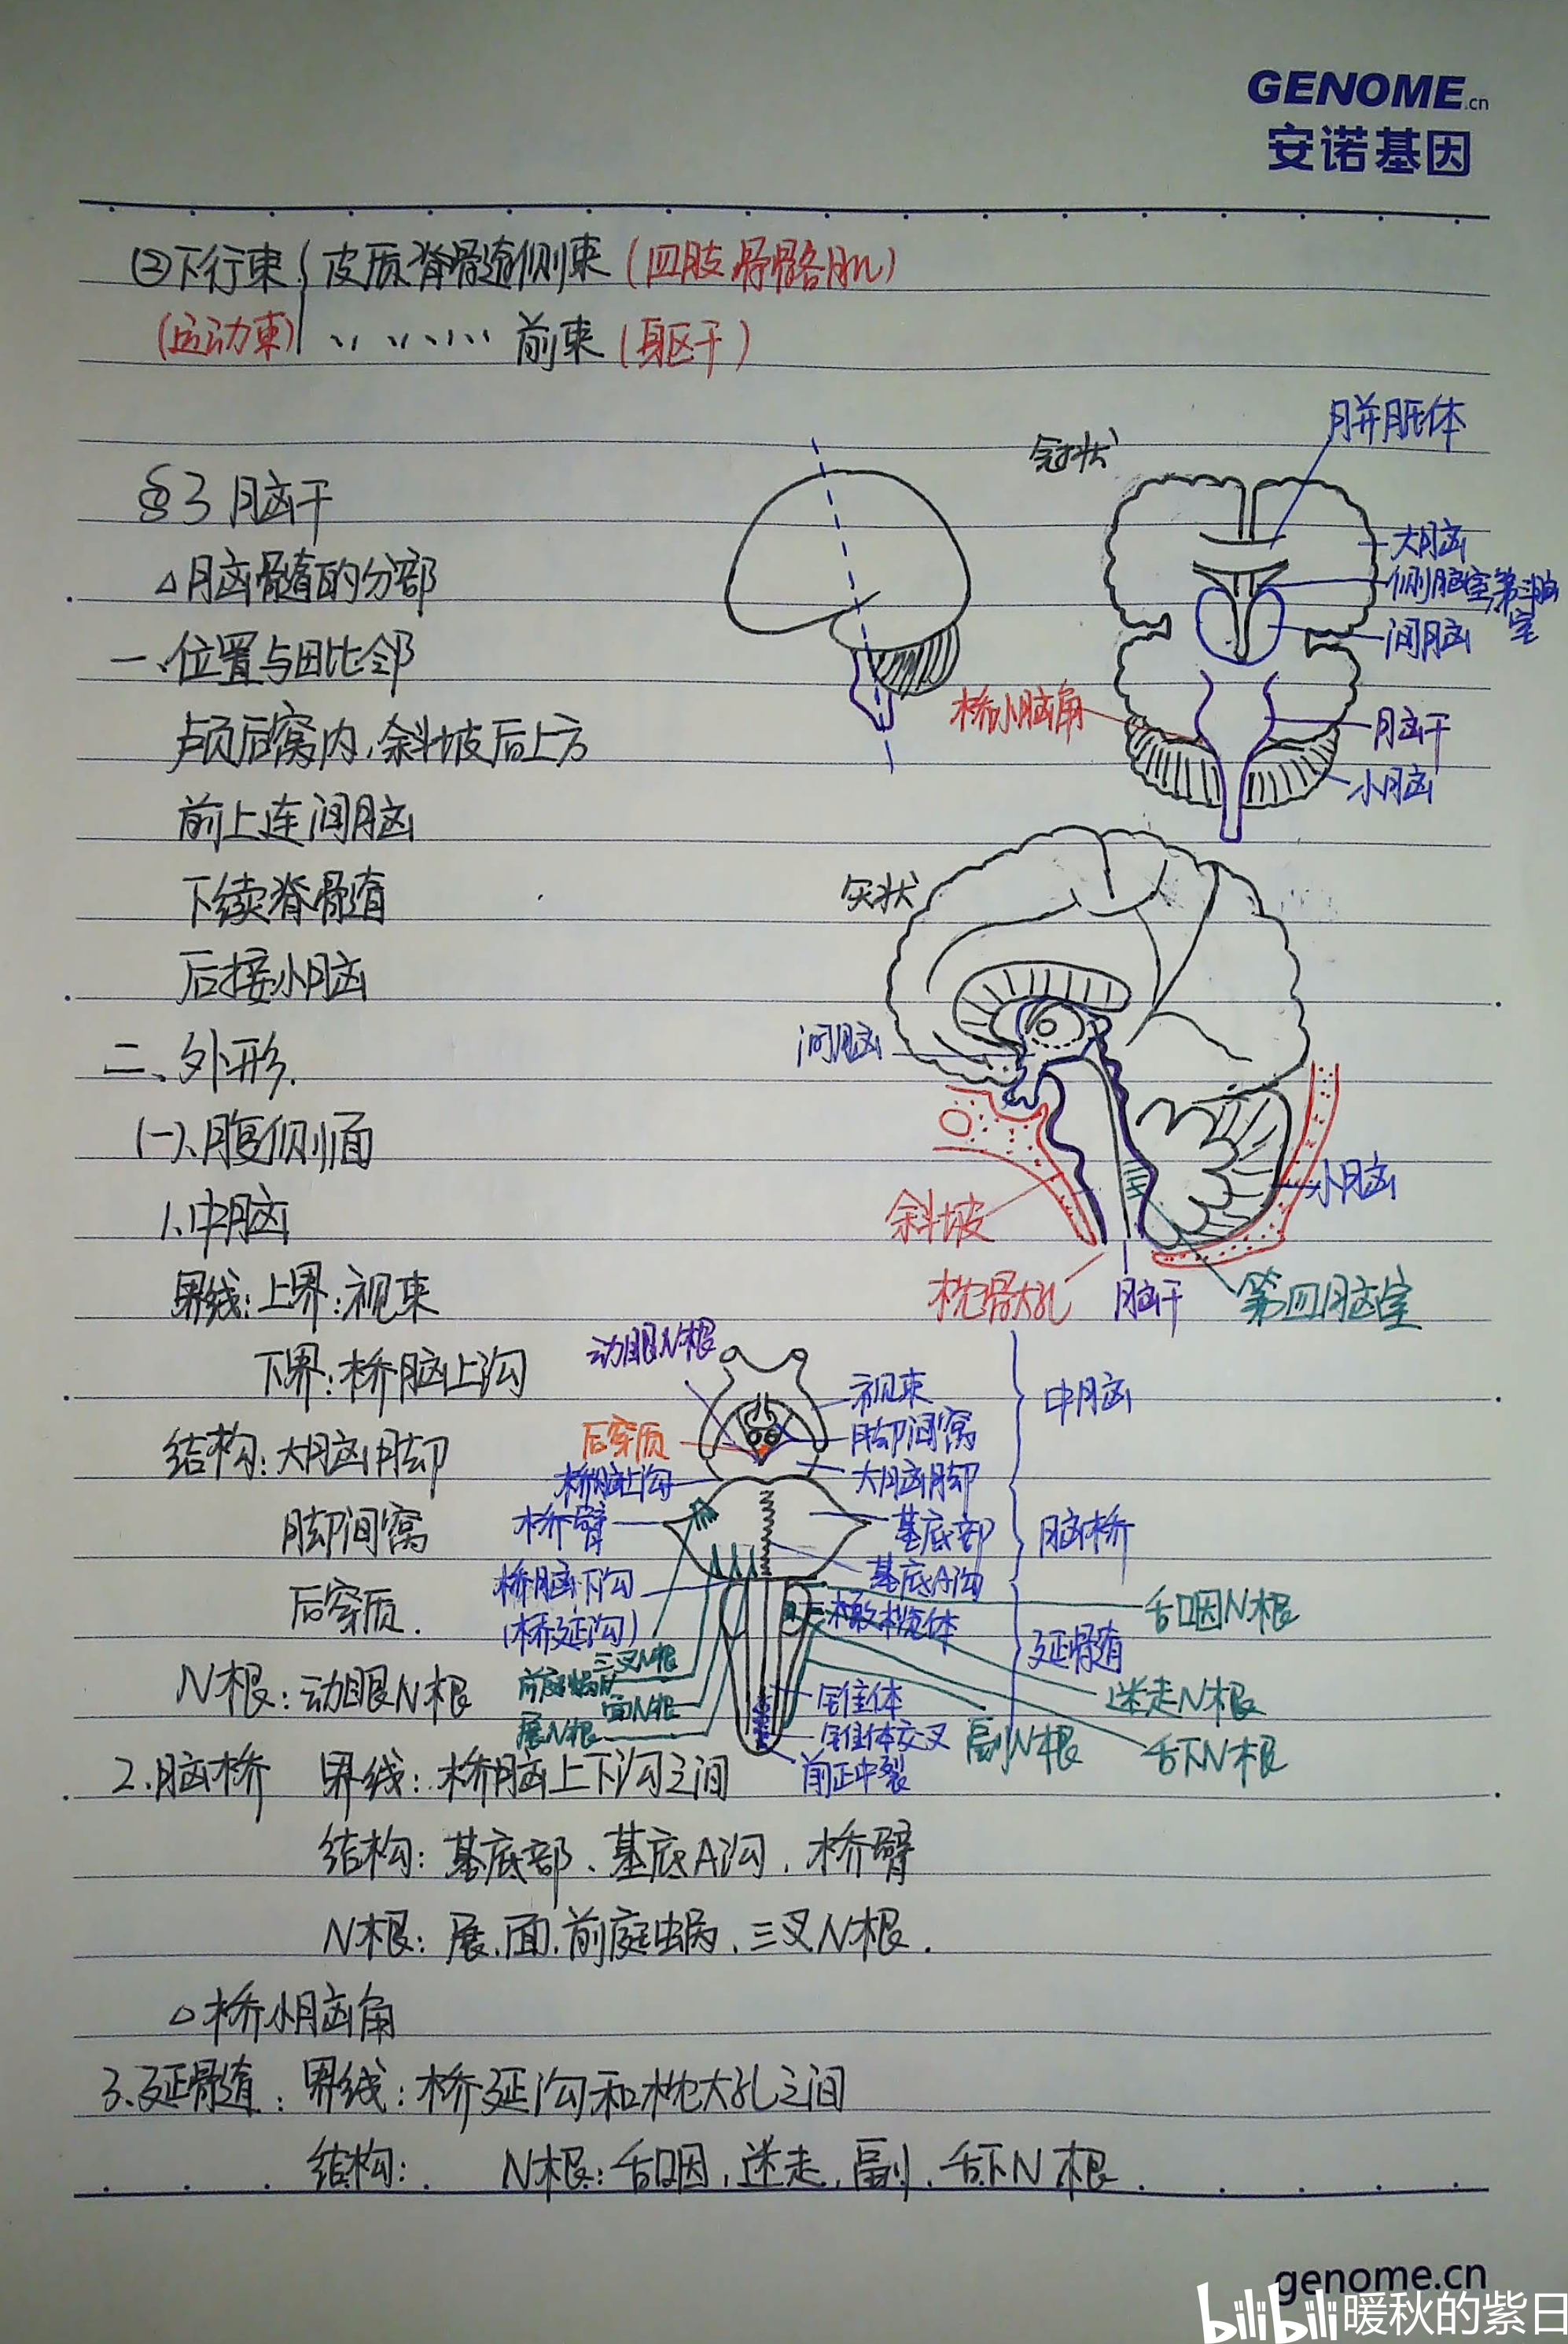 GENOME.cn
安诺基因
②下行束{皮质脊髓侧束(四肢骨骼肌)
(运动束) 〃〃〃〃前束(躯干)
§3 脑干
△脑髓的分部
一、位置与毗邻
颅后窝内,斜坡后上方
前上连间脑
下续脊髓
后接小脑
二、外形.
(一)、腹侧面
1、中脑
界线:上界:视束
下界:桥脑上沟
结构:大脑脚
脚间窝
后穿质.
N根:动眼N根
冠状
胼胝体
大脑
侧脑室,第三脑室
间脑
桥小脑角
脑干
小脑
矢状
间脑
小脑
斜坡
枕骨大孔
脑干
第四脑室
动眼N根
视束
脚间窝
大脑脚
后穿质
桥脑上沟
桥臂
基底部
基底A沟
桥脑下沟
(桥延沟)
橄榄体
三叉N根
前庭蜗N
面N根
展N根
锥体
锥体交叉
前正中裂
中脑
脑桥
延髓
舌咽N根
迷走N根
副N根
舌下N根
2.脑桥 界线:桥脑上下沟之间
结构:基底部、基底A沟、桥臂
N根:展、面、前庭蜗、三叉N根.
△桥小脑角
3.延髓:界线:桥延沟和枕大孔之间
结构: N根:舌咽,迷走,副,舌下N根
genome.cn
bilibili 暖秋的紫日